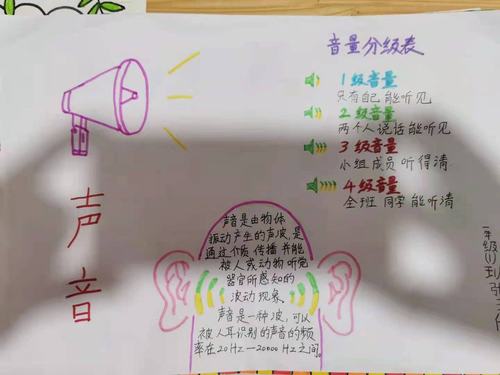 音量分级表
1级音量
只有自己能听见
2级音量
两个人说话能听见
3级音量
小组成员听得清
4级音量
全班同学能听清
声音
声音是由物体
振动产生的声波,是
通过介质传播并能
被人或动物听觉
器官所感知的
波动现象。
声音是一种波,可以
被人耳识别的声音的频
率在20Hz—20000Hz之间。
一年级(1)班